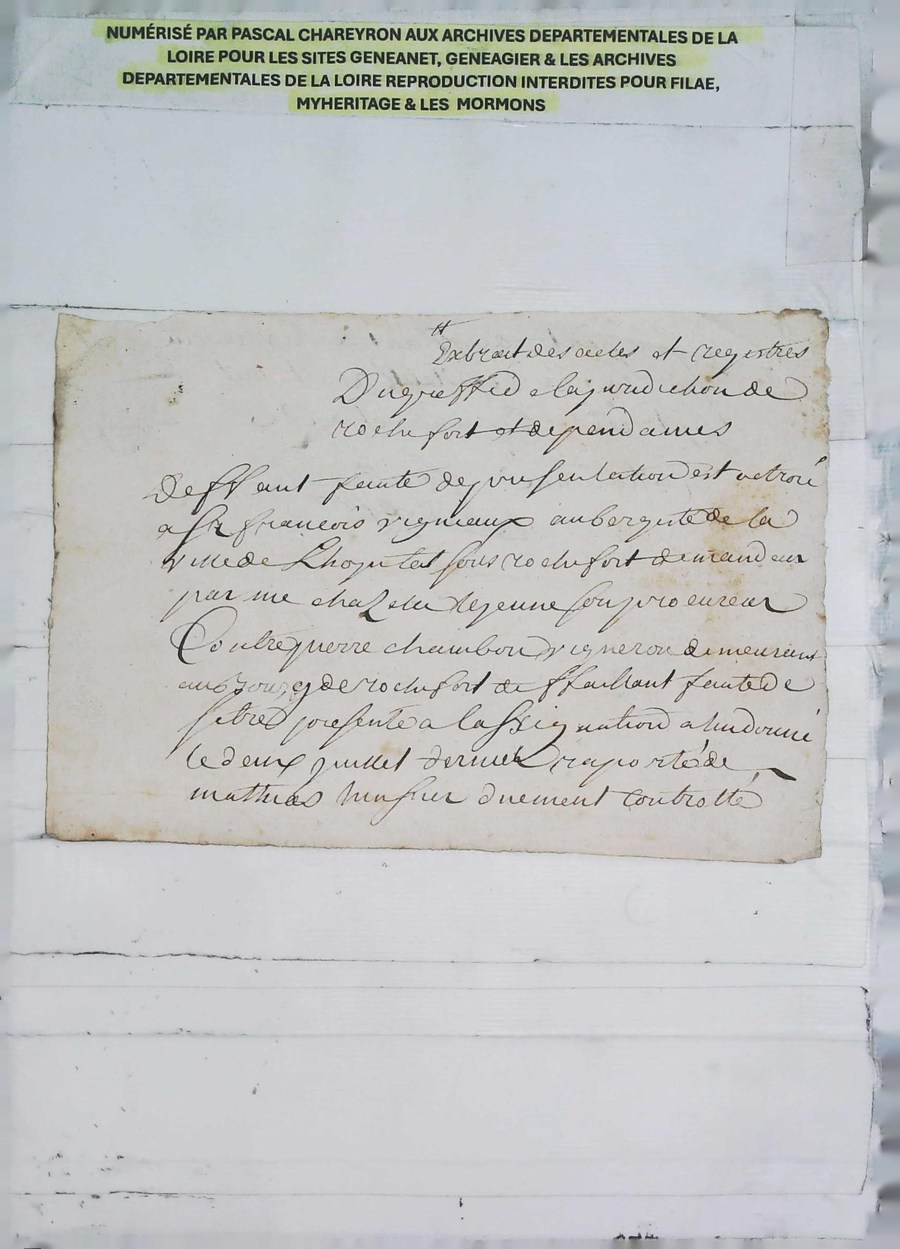 NUMÉRISÉ PAR PASCAL CHAREYRON AUX ARCHIVES DEPARTEMENTALES DE LA
LOIRE POUR LES SITES GENEANET, GENEAGIER & LES ARCHIVES
DEPARTEMENTALES DE LA LOIRE REPRODUCTION INTERDITES POUR FILAE,
MYHERITAGE & LES MORMONS
Extrait des actes et registres
Du greffe de la juridiction de
rochefort et dependames
Deffaut faute de presentation est octroié
a Sr francois vigneaux aubergiste de la
ville de Lhopital sous rochefort demandeur
par me lejeune son procureur
Contre pierre chambon vigneron demeurant
au bourg de rochefort deffaillant faute de
setre presenté a lassignation a lui donné
le deux juillet dernier raporté de
mathias duement controllé